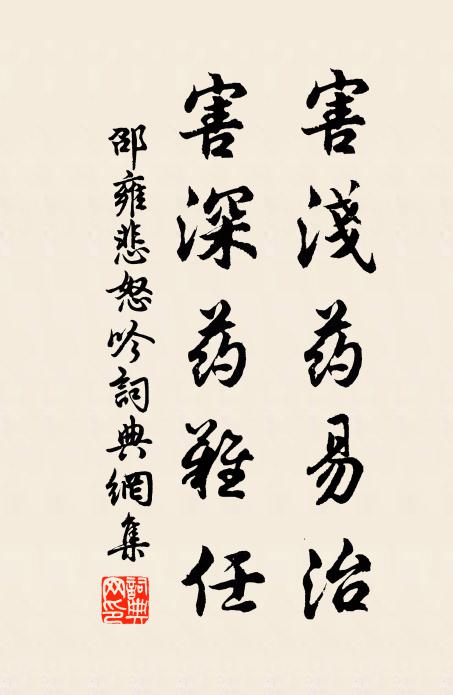 害淺药易治
害深药難任
邵雍悲怒吟詞典網集
詞典網印